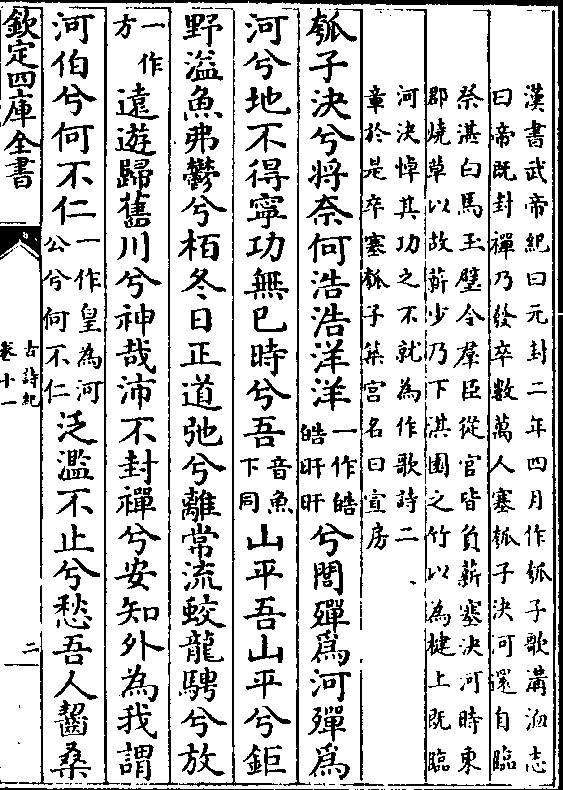 漢書武帝紀曰元封二年四月作瓠子歌溝洫志
曰帝既封禪乃發卒數萬人塞瓠子決河還自臨
祭湛白馬玉璧令羣臣從官皆負薪塞決河時東
郡燒草以故薪少乃下淇園之竹以為楗上既臨
河決悼其功之不就為作歌詩二
章於是卒塞瓠子築宮名曰宣房
瓠子決兮將奈何浩浩洋洋一作皓皓旰旰兮閭殫爲河殫爲
河兮地不得寧功無已時兮吾音魚下同山平吾山平兮鉅
野溢魚弗鬱兮栢冬日正道弛兮離常流蛟龍騁兮放
一作方遠遊歸舊川兮神哉沛不封禪兮安知外為我謂
河伯兮何不仁一作皇為河公兮何不仁泛濫不止兮愁吾人齧桑
欽定四庫全書
古詩紀
卷十一
二